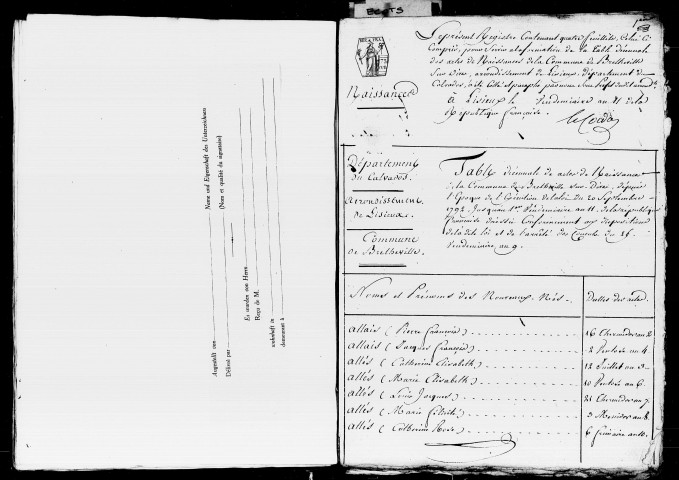 Ausgestellt von
Délivré par
Name und Eigenschaft des Unterzeichners
(Nom et qualité du signataire)
Es wurden von Herrn
Reçu de M.
wohnhaft in
demeurant à
BOUTS
Le présent Registre Contenant quatre feuillets, Celui Ci
Compris, pour Servir à la formation de la table décennale
des actes de Naissances de la Commune de Bretheville
Sur Dive, arrondissement de Lisieux, département du
Calvados, a été Coté et paraphé par nous Sous Préfet
à Lisieux le Vendémiaire an 11 de la
République française.
Naissances
Département
du Calvados.
Arrondissement
de Lisieux.
Commune
de Bretheville.
Table décennale des actes de Naissance
de la Commune de Bretheville Sur Dive, depuis
l'Epoque de l'Exécution de la loi du 20 Septembre
1792 Jusqu'au 1er Vendémiaire an 11 de la république
française dressée Conformément aux dispositions
de la dite loi et de l'arrêté des Consuls du 25
Vendémiaire an 9.
Noms et Prénoms des Nouveaux Nés. Dattes des actes.
allais (Pierre François) 16 Thermidor an 2
allais (Jacques François) 2 Ventose an 4
allés (Catherine Elisabeth) 12 Juillet
allés (Marie Elisabeth) 10 Ventose an 6
allés (Louis Jacques) 21 Thermidor an 7
allés (Marie Célestine) 3 Messidor an 8
allés (Catherine Rose) 6 frimaire an 10